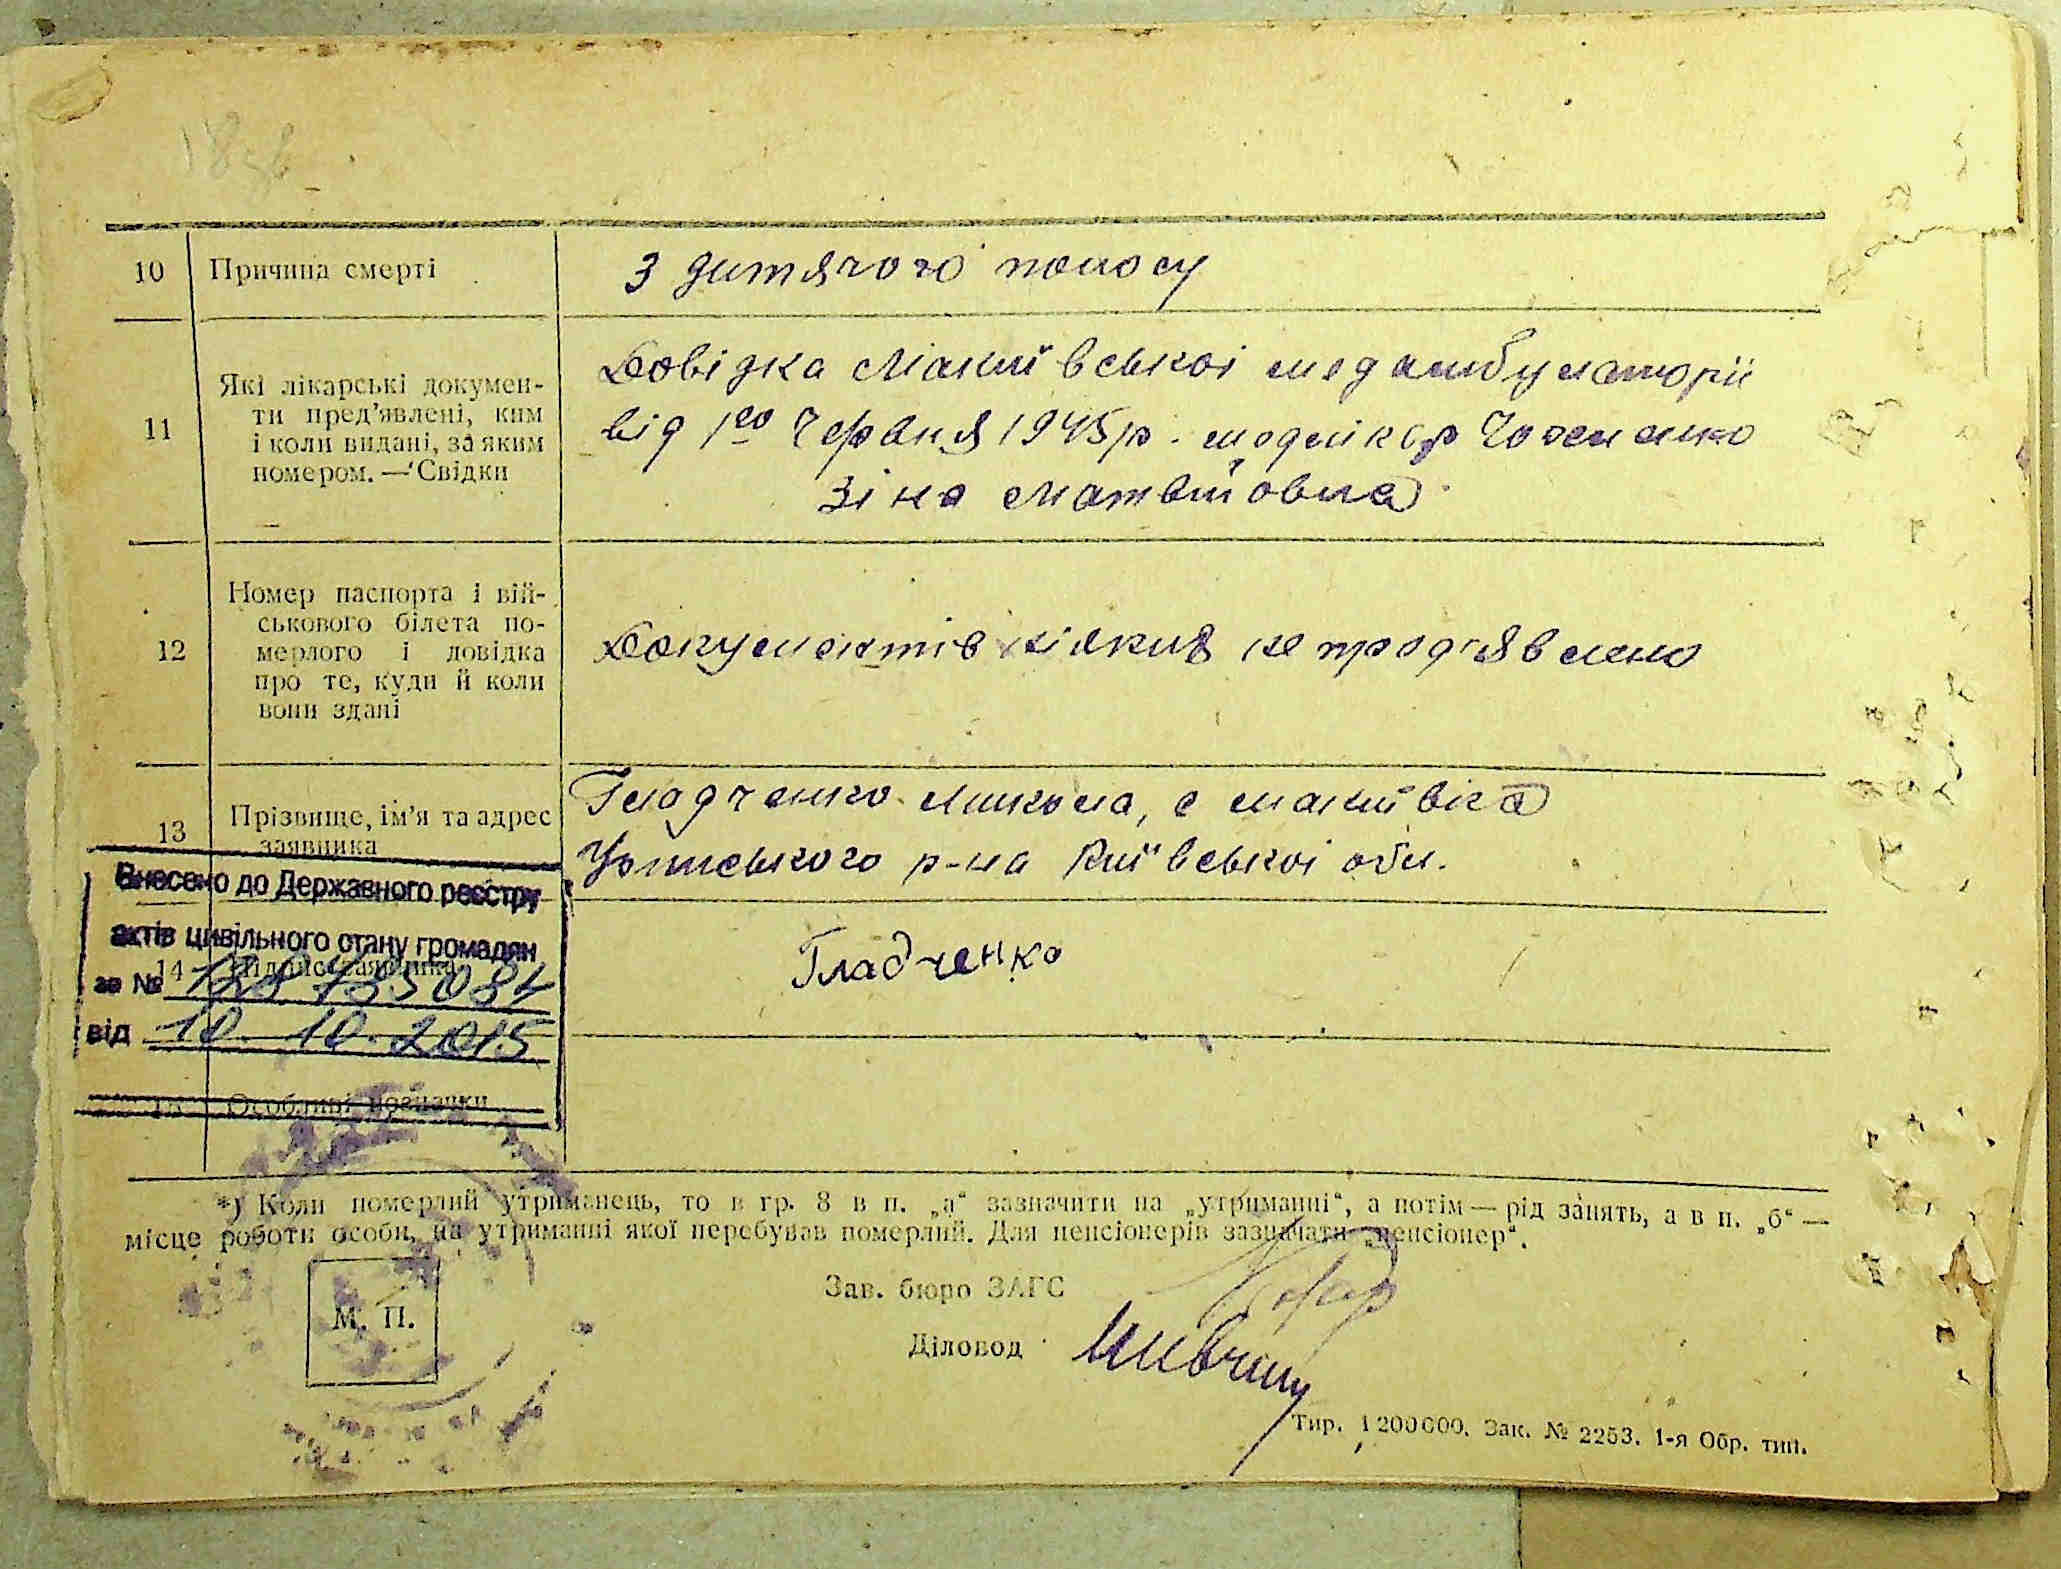 10 Причина смерті
З дитячого поносу
11 Які лікарські докумен-
ти пред’явлені, ким
і коли видані, за яким
номером. — Свідки
Довідка Макіївської медамбулаторії
від 1го червня 1945р. медлікар
Зіна Матвіївна
12 Номер паспорта і вій-
ськового білета по-
мерлого і довідка
про те, куди й коли
вони здані
Документів ніяких не пред'явлено
13 Прізвище, ім’я та адрес
заявника
Гладченко Микола, с Макіївка
р-на Київської обл.
Внесено до Державного реєстру
актів цивільного стану громадян
14 Підпис заявника
за №
Гладченко
від 10. 10. 2015
15 Особливі позначки
*) Коли померлий утриманець, то в гр. 8 в п. „а“ зазначити на „утриманні“, а потім — рід занять, а в п. „б“ —
місце роботи особи, на утриманні якої перебував померлий. Для пенсіонерів зазначати „пенсіонер“.
М. П.
Зав. бюро ЗАГС
Діловод
Тир. 1200000. Зак. № 2253. 1-я Обр. тип.